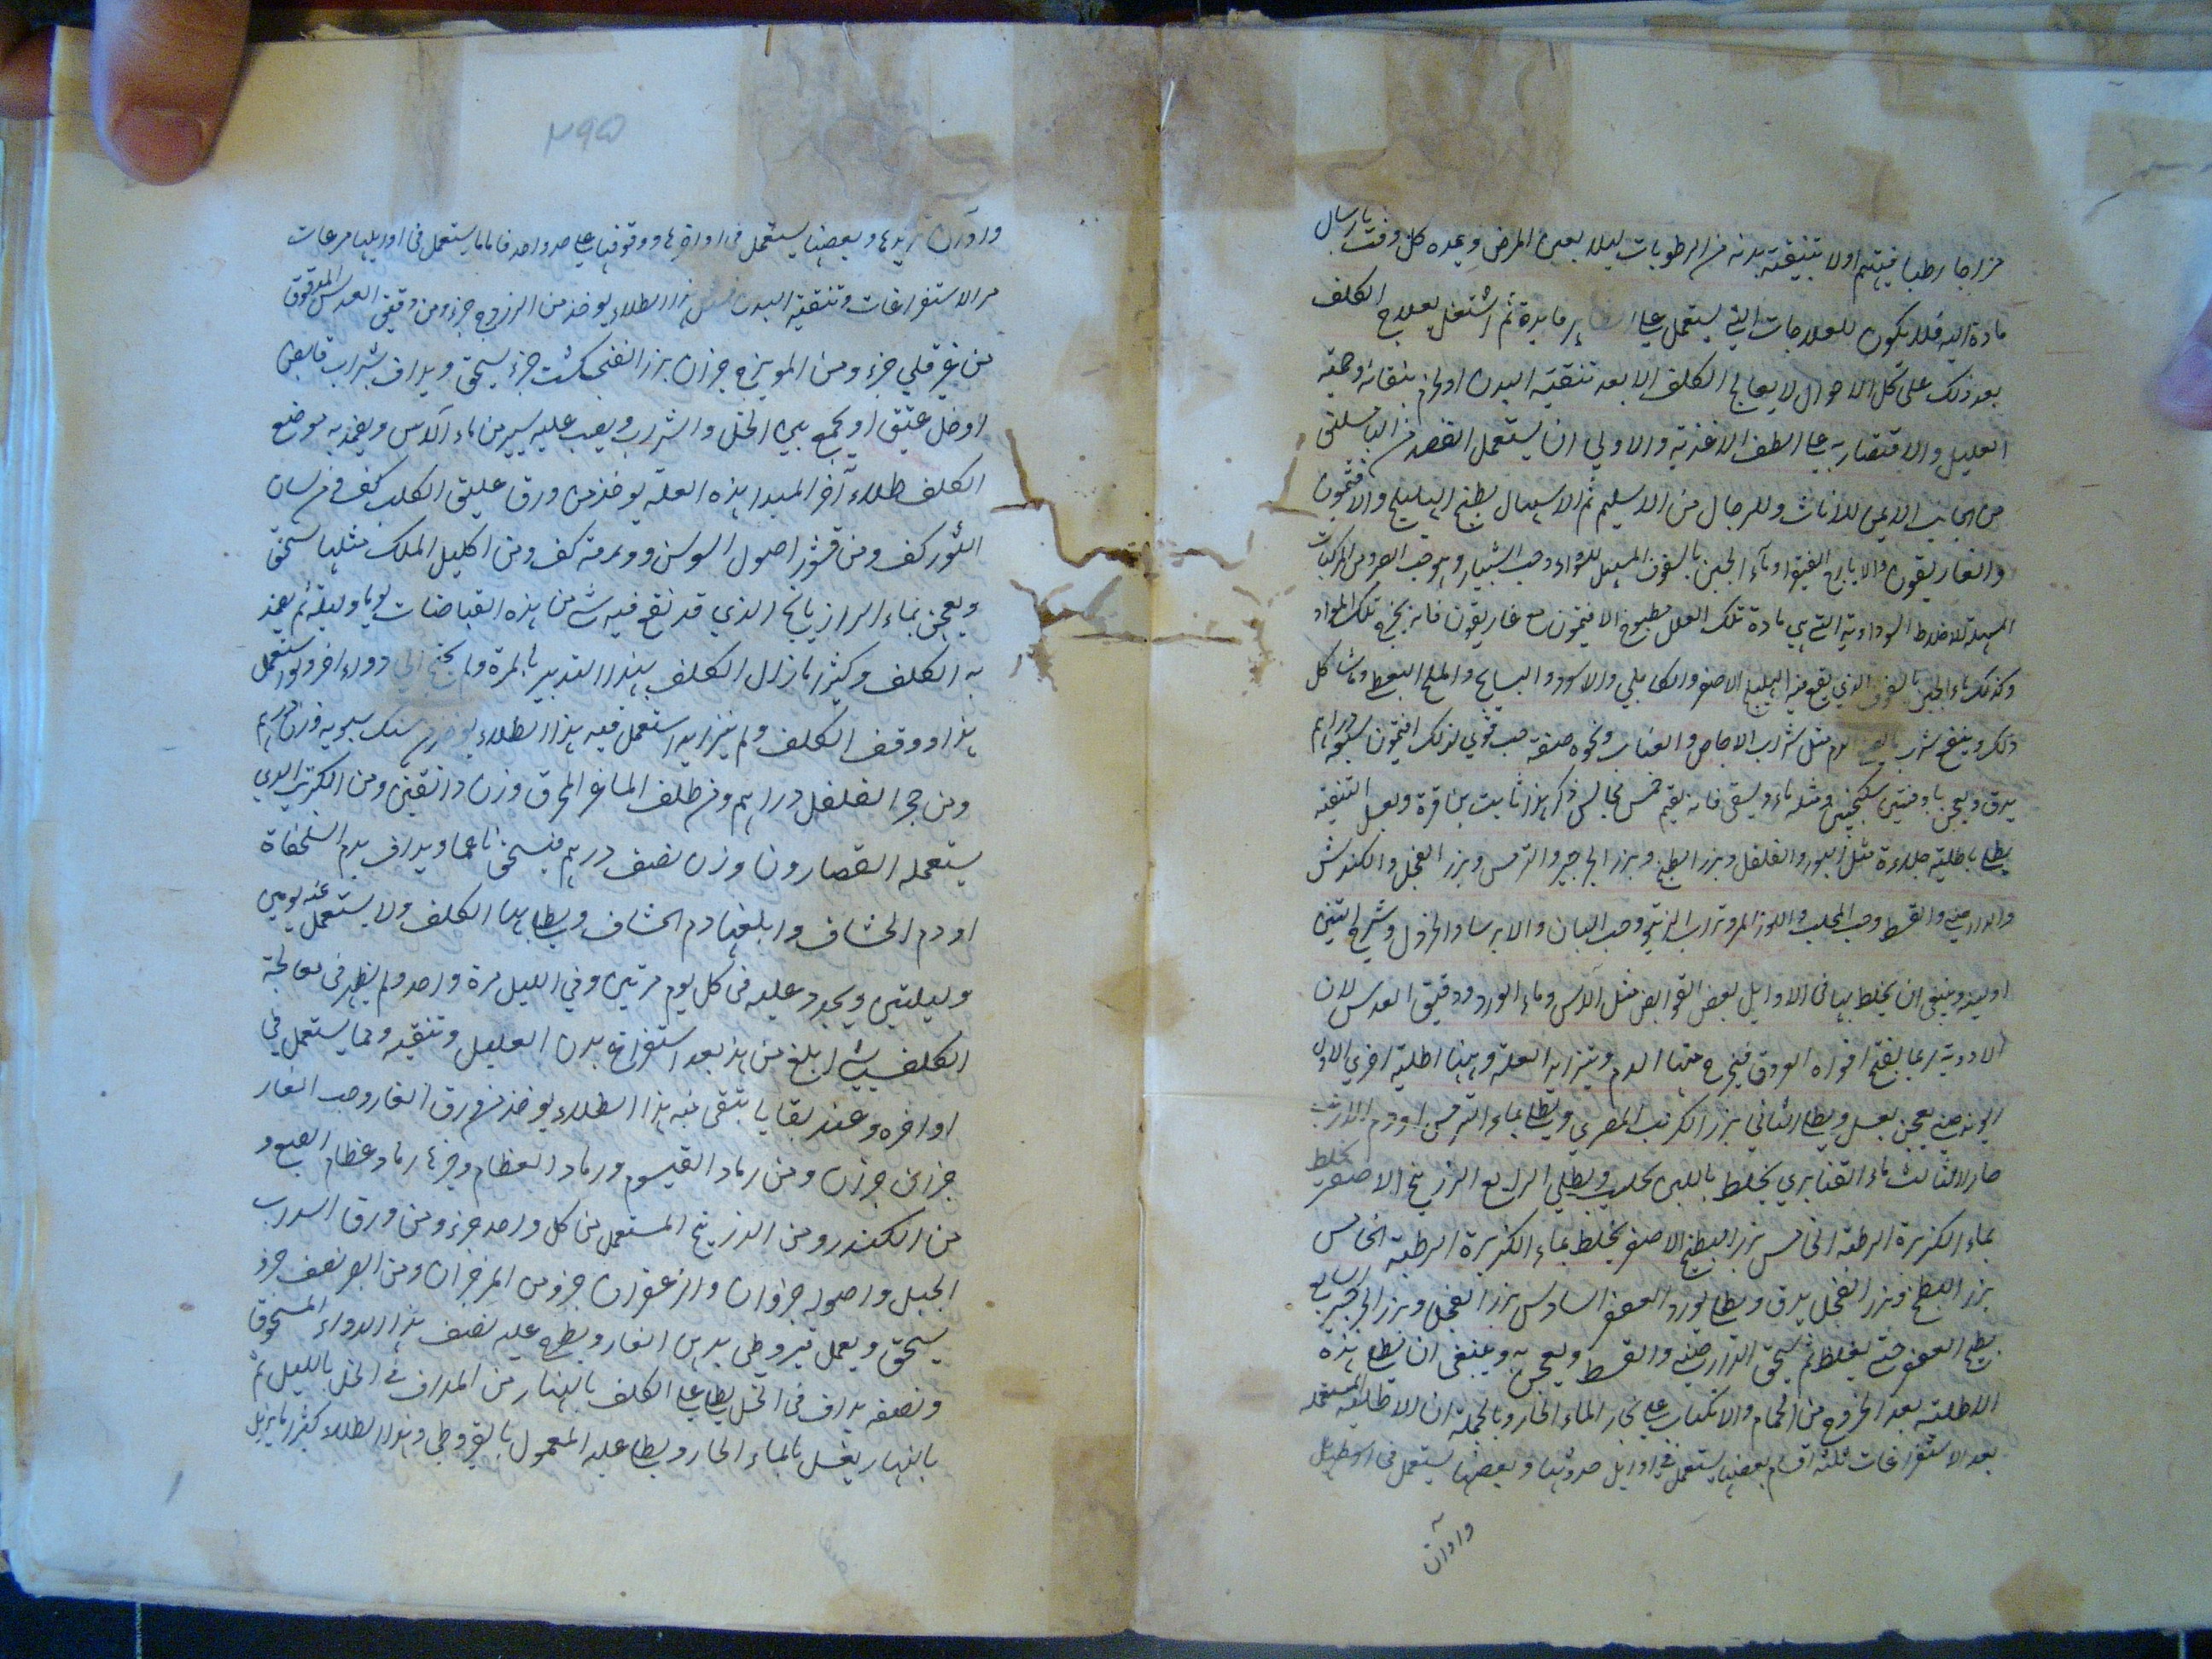 مزاجا رطبا فيتهم اولا بتنقيته بدنه من الرطوبات ليلا يعين المرض ويمده كل وقت بارسال
مادة اليه فلا يكون للعلاجات التي يستعمل على فايدة ثم اشتغل بعلاج الكلف
بعد ذلك على كل الاحوال لا يعالج الكلف الا بعد تنقية البدن اولزم بنقائه وحمية
العليل والاقتصار به على الطف الاغذية والاولى ان يستعمل الفصد من الباسليق
من الجانب الايمن للاناث وللرجال من الاسيلم ثم الاسهال بطبخ الهليلج والافتيمون
والغاريقون والايارج الفيقرا وماء الجبن بالسفوف المسهل للسوداء وحب الشبيار وهو حب الصبر ومن المركبات
المسهلة للاخلاط السوداوية التي هي مادة تلك العلل مطبوخ الافتيمون مع غاريقون فانه يخرج تلك المواد
وكذلك ماء الجبن بالسفوف الذي يقع فيه الهليلج الاصفر والكابلي والاسود والبسايج والملح النفطي وما شاكل
ذلك وينفع شرب مثل شراب الاجاص والعناب ونحوه صفة حب قوي لذلك افتيمون سبعة دراهم
يدق ويعجن باوقيتين سكنجبين ومثله ماء ويسقى فانه يقيم خمس مجالس ذكر هذا ثابت بن قرة وبعد التنقية
يطلى باطلية جلاءة مثل البورق والفلفل وبزر البطيخ وبزر الجرجير والترمس وبزر الفجل والكندش
والدارصيني والقسط وحب المحلب واللوز المر وتراب الزيبق وحب البان والايرسا والخردل وشيرج التين
اوليه وينبغي ان يخلط بها في الاوايل بعض القوابض مثل الآس وماء الورد ودقيق العدس لان
الادوية ربما يفتح افواه العروق فيخرج منها الدم ويتزايد العلة وهنا اطلية اخرى الاول
يعجن بعسل ويطلى الثاني بزر الكرنب المصري ويطلى بماء الترمس او دم الارنب
حارا الثالث ماء القنابري يخلط باللبن الحليب ويطلى الرابع الزرنيخ الاصفر يخلط
بماء الكزبرة الرطبة الخامس بزر البطيخ الاصفر يخلط بماء الكزبرة الرطبة الخامس
بزر البطيخ وبزر الفجل يدق ويطلى لورد العصفر السادس بزر الفجل وبزر الجرجير السابع
يطبخ العصفر حتى يغلظ ثم يسحق الدارصيني والقسط ويعجن به وينبغي ان يطلى بهذه
الاطلية بعد الخروج من الحمام والانكباب على بخار الماء الحار وبالجملة ان الاطلية المستعملة
بعد الاستفراغات ثلثة اقسام بعضها يستعمل في اوايل حدوثها وبعضها يستعمل في اوسطها
واوآن
واوآن تزيدها وبعضها يستعمل في اواخرها ووقوفها على حد واحد فاما ما يستعمل في اوايلها مرعات
من الاستفراغات وتنقية البدن هذا الطلاء يوخذ من الزوج جزء ومن دقيق العدس المدقوق
من غير قلي جزء ومن المويزج جزءان بزر الفنجنكشت جزء يسحق ويداف بشراب قابض
او خل عتيق او يجمع بين الخل والشراب ويصب عليه يسير من ماء الآس ويضمد به موضع
الكلف طلاء آخر المبدا بهذه العلة يوخذ من ورق عليق الكلب كف ومن لسان
الثور كف ومن قشور اصول السوسن وورقه كف ومن اكليل الملك مثلها يسحق
ويعجن بماء الرازيانج الذي قد نقع فيه شيء من هذه القباضات يوما وليلة ثم يضمد
به الكلف وكثيرا ما زال الكلف بهذا التدبير بالمرة ولم يحتج الى دواء اخر ولو استعمل
هذا ووقف الكلف ولم يتزايد استعمل فيه هذا الطلاء يوخذ من سنك سبويه وزن درهم
ومن حجر الفلفل دراهم ومن ظلف الماعز المحرق وزن دانقين ومن الكبريت الذي
يستعمله القصارون وزن نصف درهم فيسحق ناعما ويداف بدم السلحفاة
او دم الخشاف وابلغها دم الخشاف ويطلى به الكلف ولا يستعمل عنه يومين
وليلتين ويجدد عليه في كل يوم مرتين وفي الليل مرة واحد ولم يظهر في معالجة
الكلف شيء ابلغ من هذا بعد استفراغ بدن العليل وتنقيه ومما يستعمل في
اواخره وعند بقايا يتبقى منه هذا الطلاء يوخذ من ورق الغار وحب الغار
جزاين جزءان ومن رماد القيسوم ورماد العظام وخيرها رماد عظام
من الكندر ومن الزرنيخ المستعمل من كل واحد جزء ومن ورق السداب
الجبلي واصوله جزوان والزعفران جزو من المرجزان ومن الصبر نصف جزء
يسحق ويعمل قيروطي بدهن الغار ويطرح عليه نصف هذا الدواء المسحوق
ونصفه يداف في الخل يطلى على الكلف بالنهار من المداف في الخل بالليل ثم
بالنهار يغسل بالماء الحار ويطلى عليه المعمول بالقيروطي وهذا الطلاء كثيرا ما يزيل